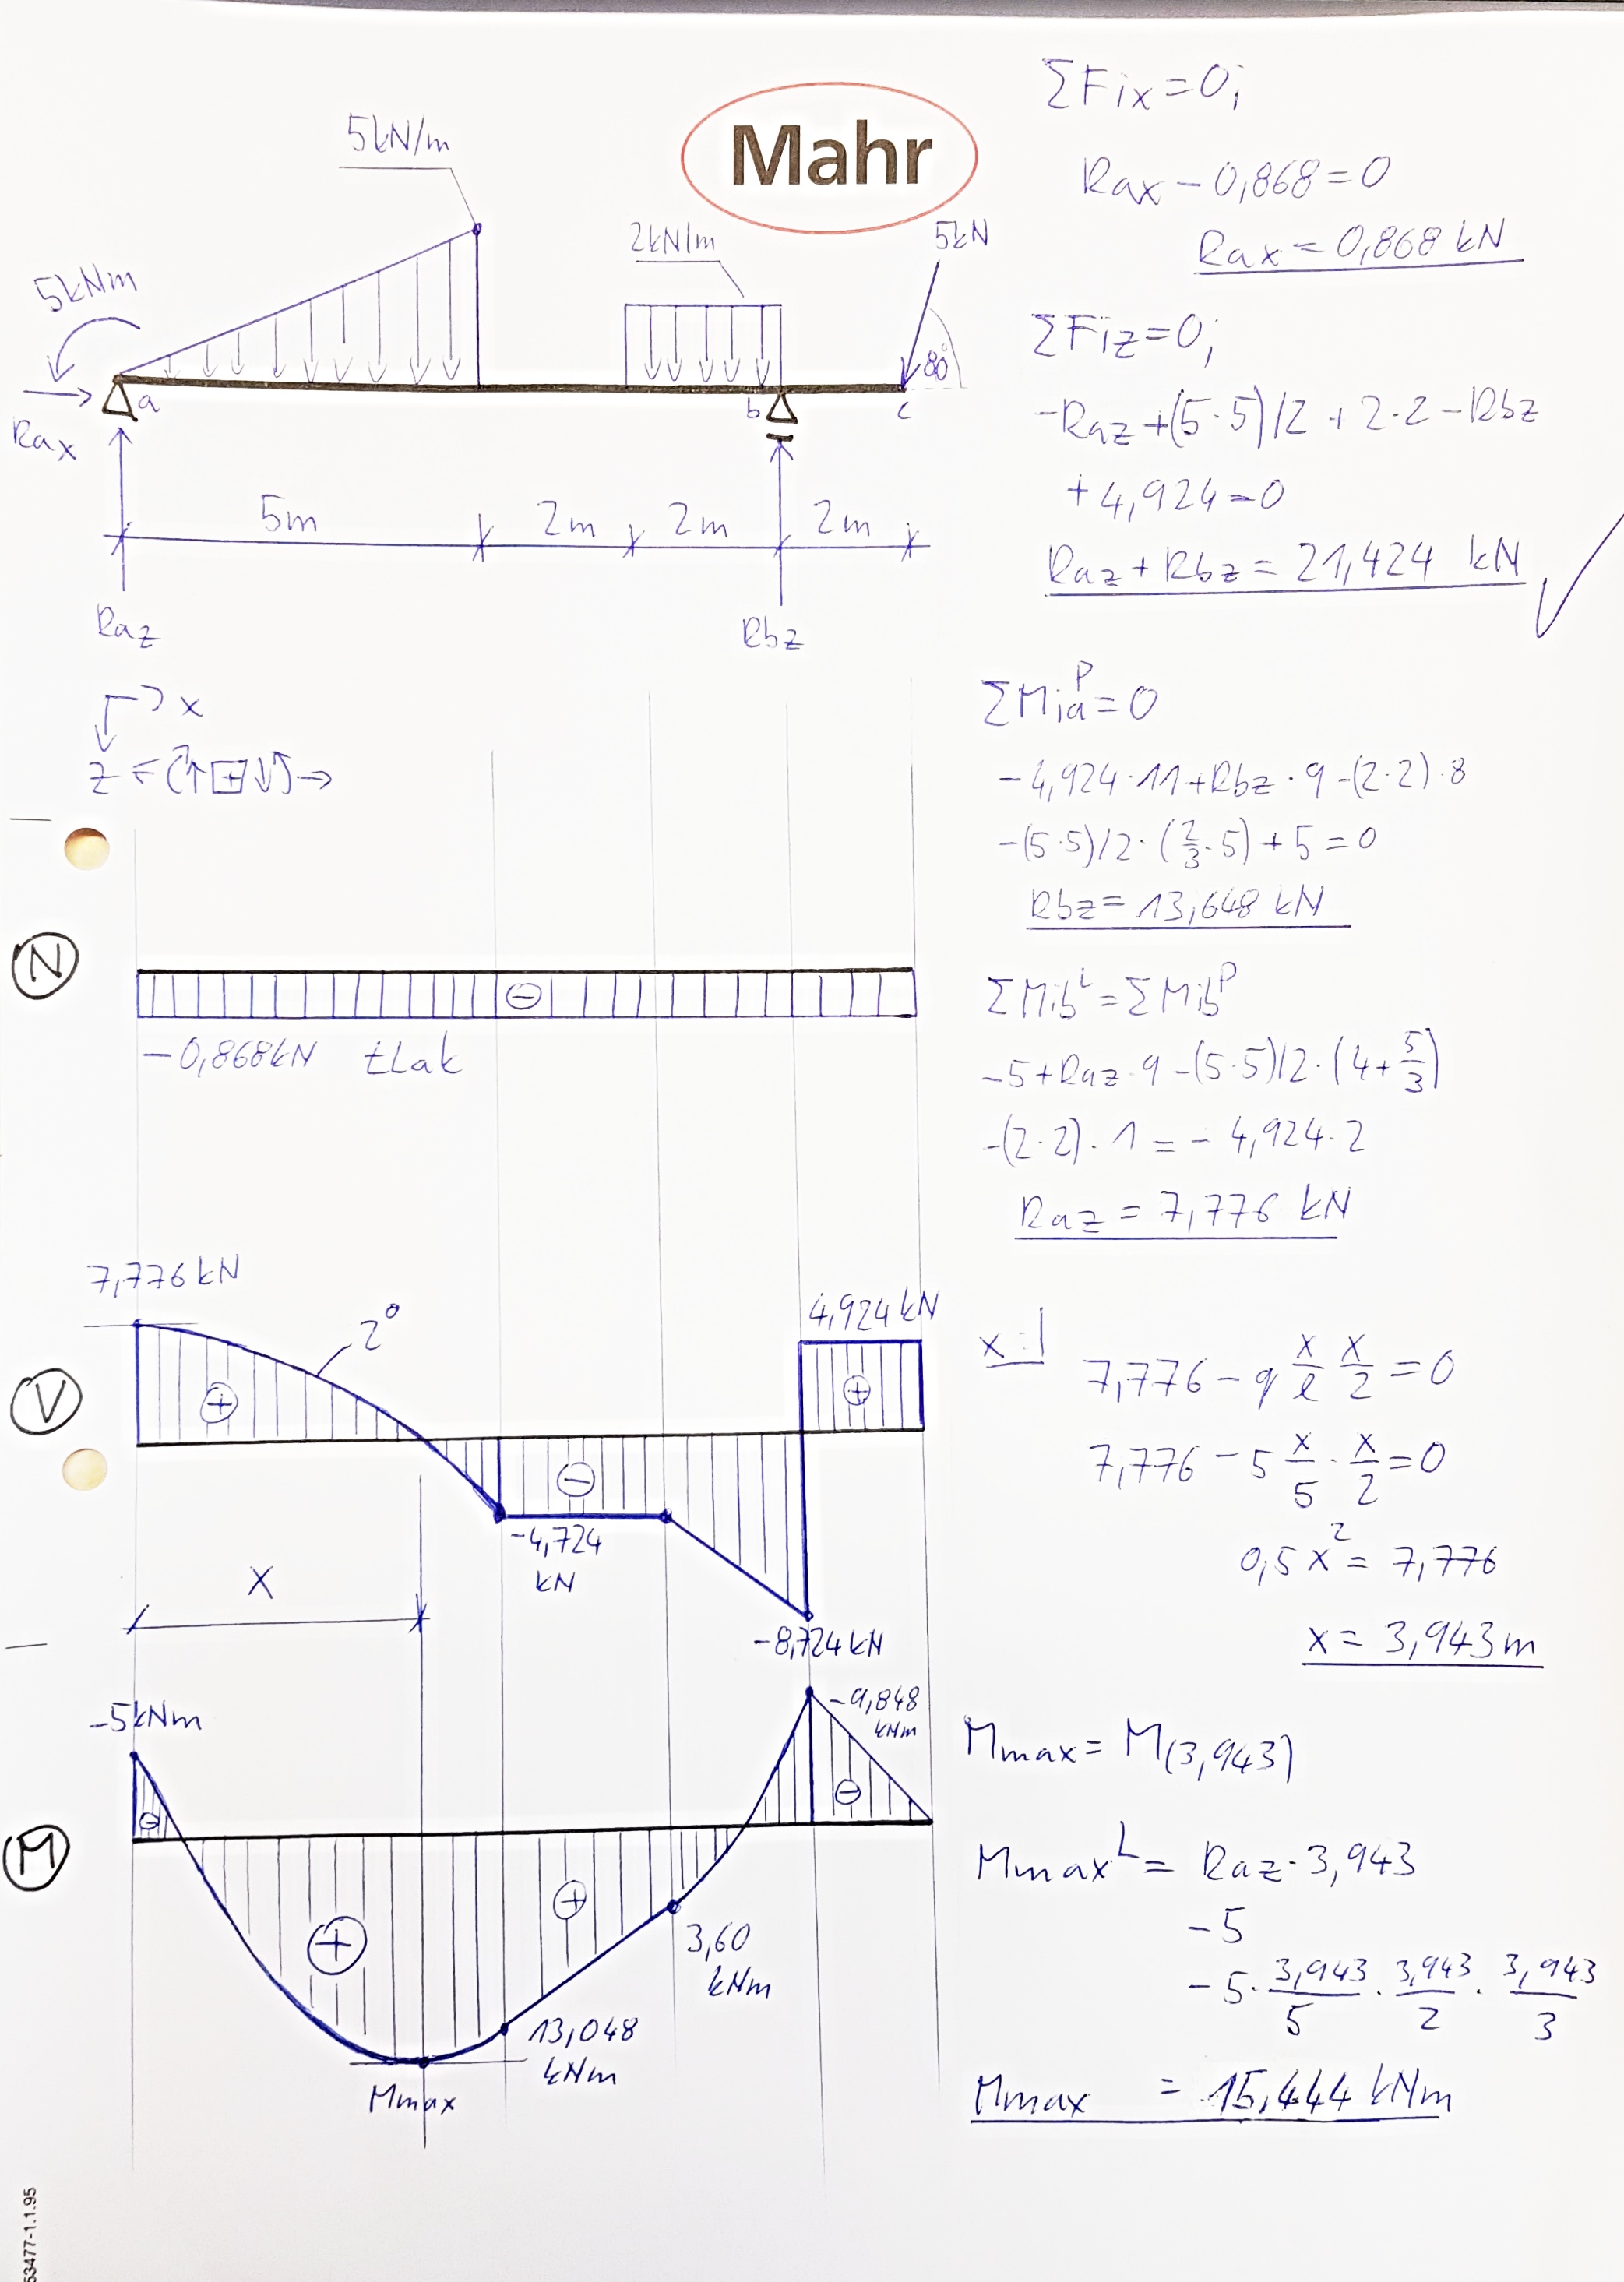 Mahr
5kN/m
2kN/m
5kN
5kNm
80°
a
b
c
Rax
5m
2m
2m
2m
Raz
Rbz
x
z
+
ΣFix=0;
Rax - 0,868 = 0
Rax = 0,868 kN
ΣFiz=0;
-Raz +(5·5)/2 + 2·2 - Rbz
+ 4,924 = 0
Raz + Rbz = 21,424 kN
ΣMia^P = 0
- 4,924·11 + Rbz · 9 - (2·2)·8
-(5·5)/2·(2/3·5) + 5 = 0
Rbz = 13,648 kN
ΣMib^L = ΣMib^P
-5 + Raz·9 - (5·5)/2·(4+5/3)
-(2·2)·1 = - 4,924·2
Raz = 7,776 kN
N
⊖
-0,868kN tlak
7,776 kN
2°
4,924 kN
V
⊕
⊖
⊕
-4,724
kN
X
-8,724 kN
x:
7,776 - q x/l x/2 = 0
7,776 - 5 x/5 · x/2 = 0
0,5 x² = 7,776
x = 3,943 m
-5kNm
-9,848
kNm
M
⊖
⊕
⊕
⊖
3,60
kNm
13,048
kNm
Mmax
Mmax = M(3,943)
Mmax^L = Raz·3,943
-5
-5· 3,943/5 · 3,943/2 · 3,943/3
Mmax = 15,444 kNm
53477-1.1.95